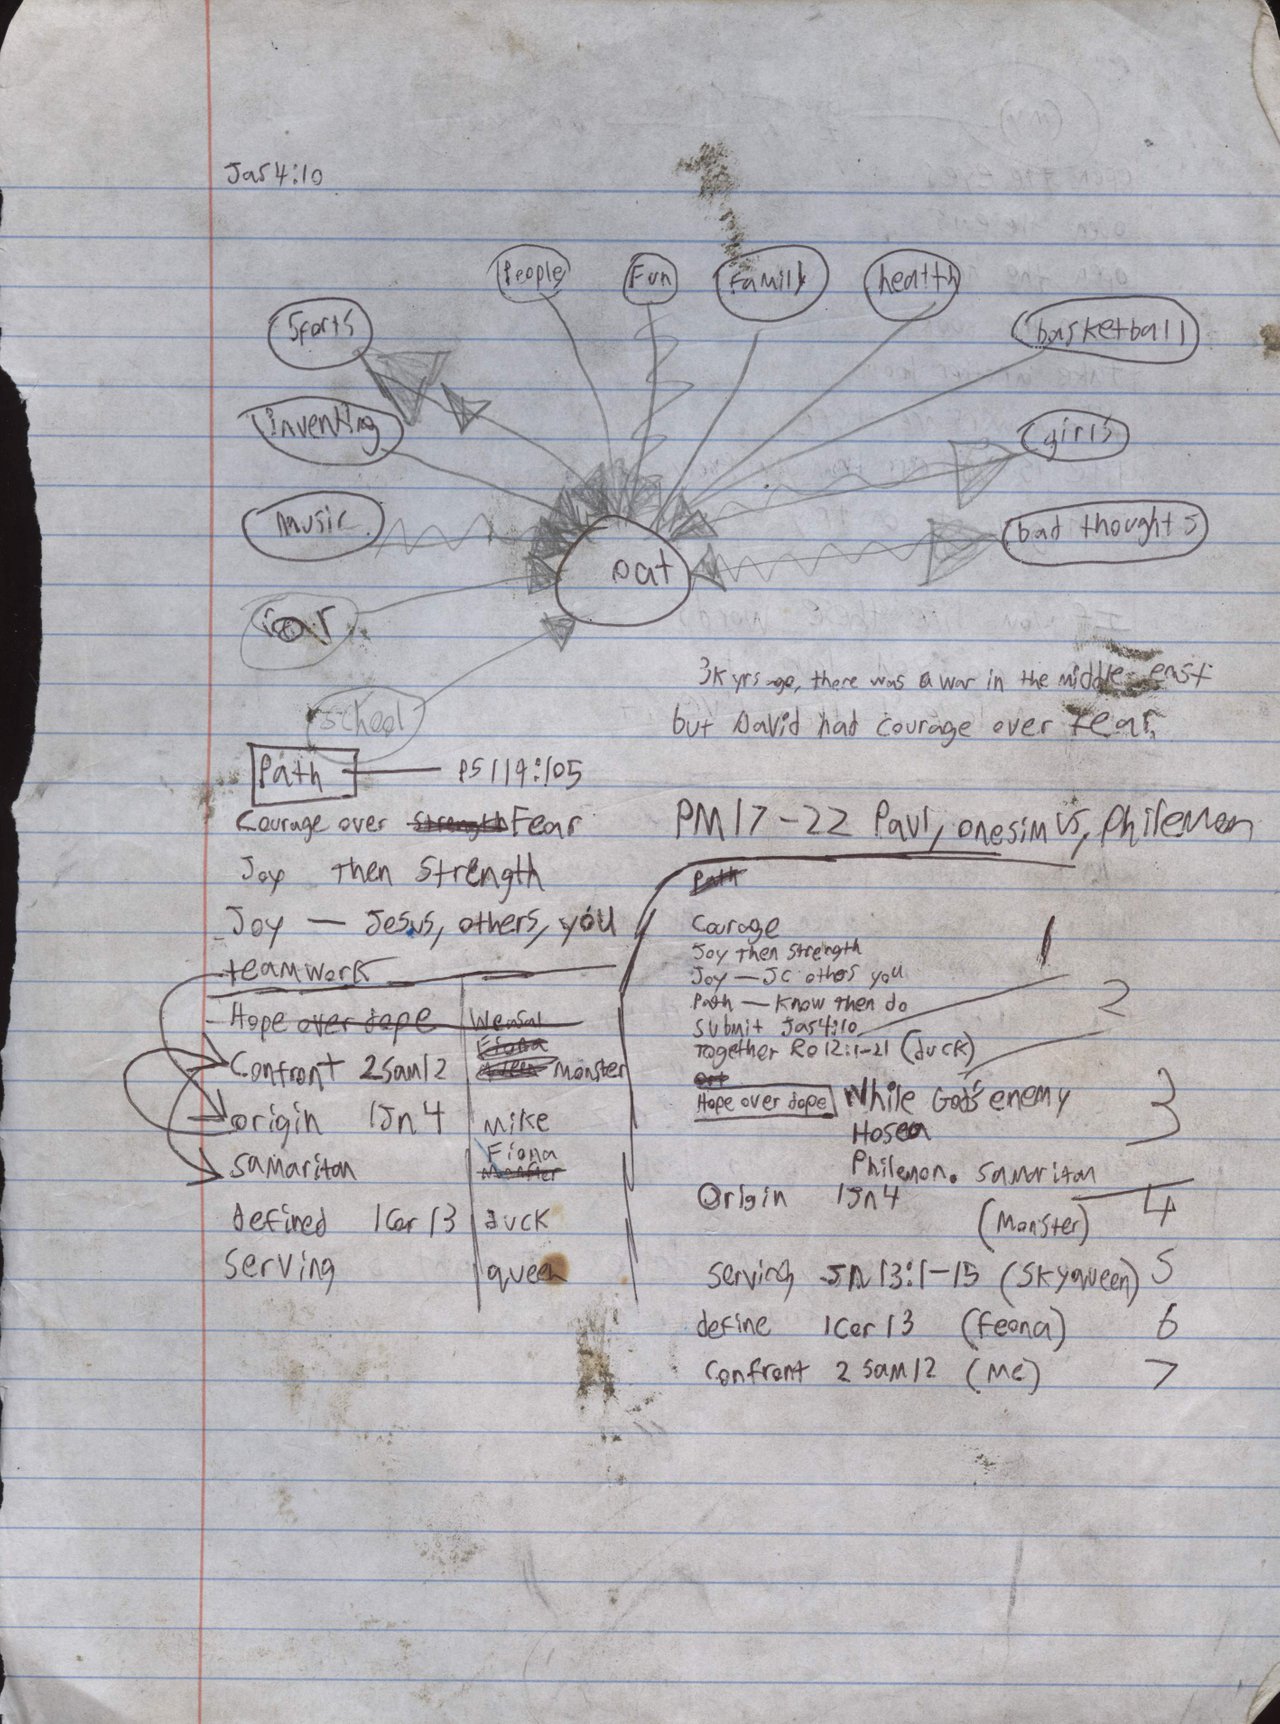 Jas 4:10
People
Fun
Family
health
sports
basketball
inventing
girls
music
bad thoughts
pat
school
3k yrs ago, there was a war in the middle east
but David had courage over fear
Path — PS 119:105
Courage over Strength Fear
Joy then Strength
Joy — Jesus, others, you
teamwork
Hope over dope Weasal
Fiona
Confront 2 Sam 12 Queen Monster
origin 1Jn 4 Mike
Fiona
Samaritan Monster
defined 1 Cor 13 duck
Serving queen
PM 17-22 Paul, onesimus, Philemon
Path
Courage
Joy then Strength 1
Joy — JC others you
Path — Know then do 2
Submit Jas 4:10
Together Ro 12:1-21 (duck)
Hope over dope While God's enemy 3
Hosea
Philemon. Samaritan
Origin 1Jn 4 4
(Monster)
Serving Jn 13:1-15 (Skyqueen) 5
define 1 Cor 13 (Feona) 6
Confront 2 Sam 12 (Me) 7